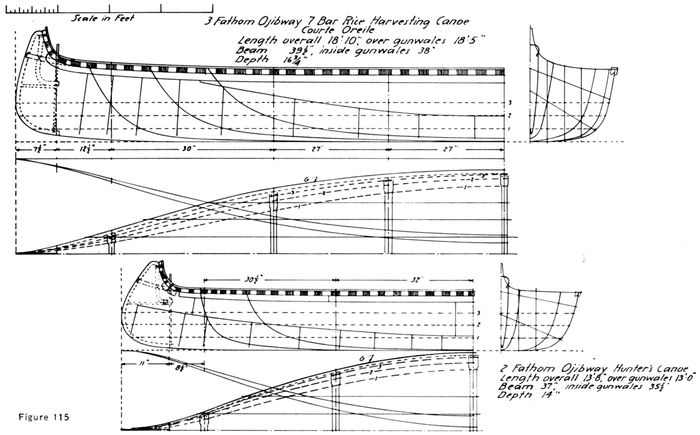 Scale in Feet
3 Fathom Ojibway 7 Bar Rice Harvesting Canoe
Courte Oreile
Length overall 18'10", over gunwales 18'5"
Beam 39½", inside gunwales 38"
Depth 16¾"
3
2
1
7½" 12½" 30" 27" 27"
G 3 2 1
30½" 32"
3
2
1
11" 8½"
G 3 2 1
2 Fathom Ojibway Hunter's Canoe
Length overall 13'8", over gunwales 13'0"
Beam 37", inside gunwales 35½"
Depth 14"
Figure 115